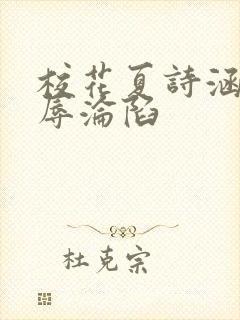 校花夏詩涵
辱淪陷
杜克宗